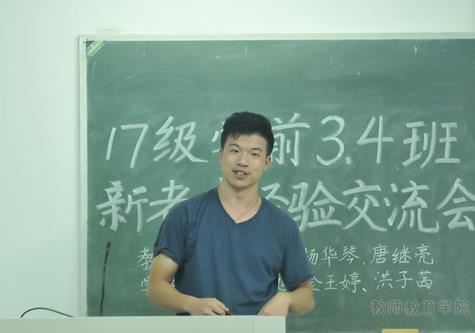 17级 前3.4班
新老 经验交流会
教 杨华琴、唐继亮
学 王婷、洪子茜
教师教育学院